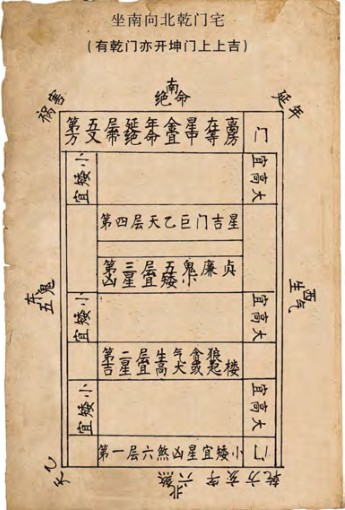 坐南向北乾门宅
(有乾门亦开坤门上上吉)
祸害
南
绝命
延年
第五层延年金星在离
方又带绝命宜中等房
门
宜矮小
宜高大
第四层天乙巨门吉星
第三层五鬼廉贞
凶星宜矮小
东
五鬼
西
生气
宜矮小
宜高大
第二层生气贪狼
吉星宜高大或起楼
宜矮小
宜高大
第一层六煞凶星宜矮小
门
天乙
北
六煞
乾方